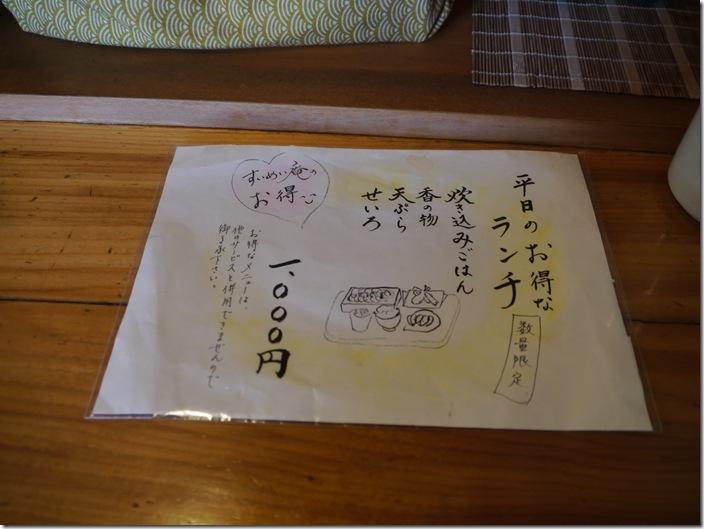 平日のお得な
ランチ
数量限定
炊き込みごはん
香の物
天ぷら
せいろ
一、〇〇〇円
ずいめい庵の
お得
お得なメニューは、
他のサービスと併用できませんので
御了承下さい。